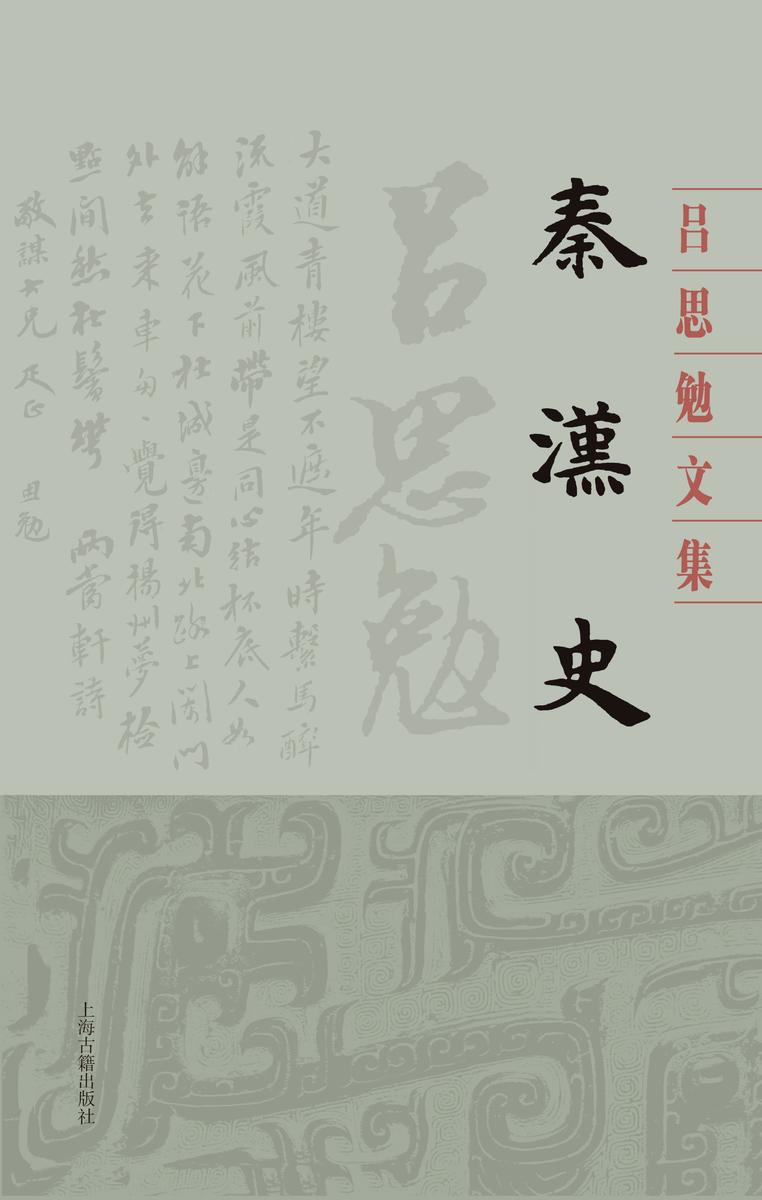 吕思勉文集
秦漢史
吕思勉
大道青樓望不遮年時繫馬醉
流霞風前帶是同心結杯底人如
解語花下杜城邊南北路上闌門
外去來車匆匆覺得揚州夢檢
點閒愁在鬢華 兩當軒詩
敬謀大兄 正 思勉
上海古籍出版社